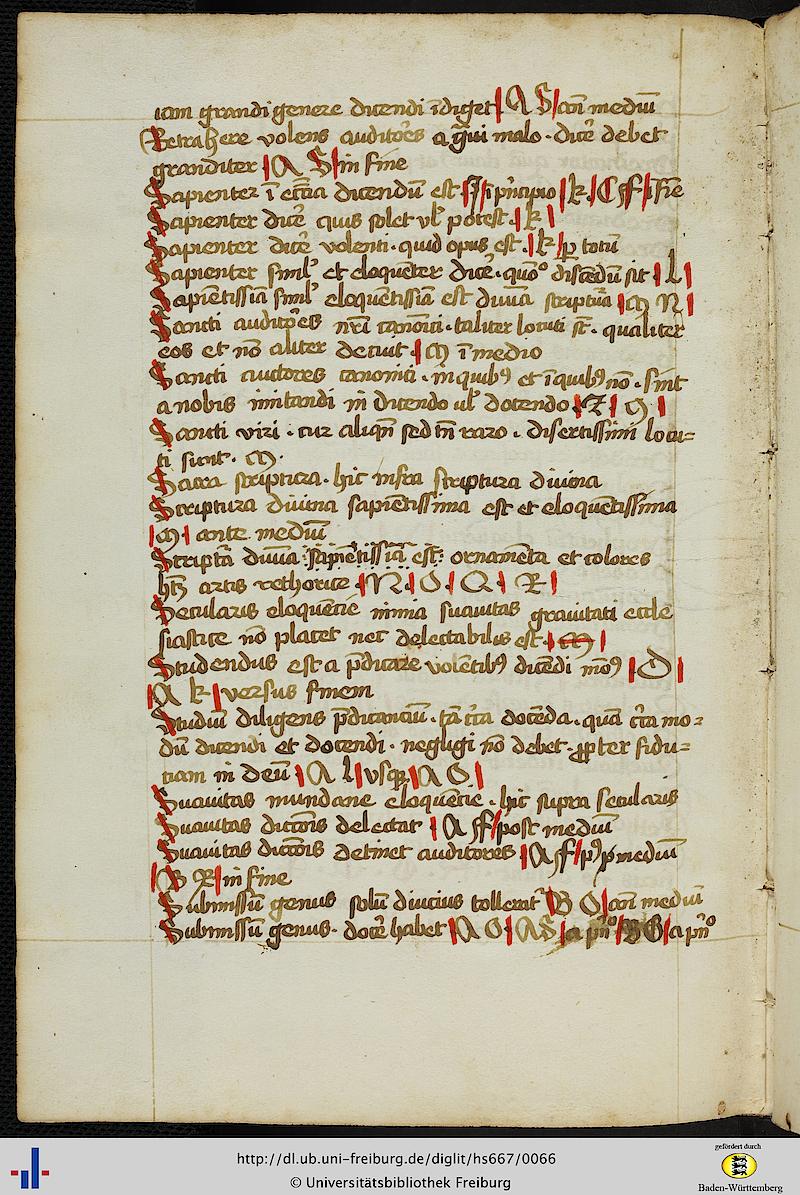 icam grandi genere dicendi īdiget A S con̄ mediū
Retrahere volens auditōres a q̄vi malo · dicē debet
granditer A S in fine
Sapienter ī eccīa dicendū est I pͥncipio k. C ff ī fīe
Sapienter dicē quis solet vl̄ potest · k
Sapienter dicē volenti · quid opus est · k ꝑ totū
Sapienter siml̄ et eloquēter dicē · quōᵒ discēdū sit L
Sapiētissīa siml̄ eloquētissīa est diuīa scriptūa M N
Sancti auditōes nr̄i canoīci · taliter locuti st̄ · qualiter
eos et nō aliter decuit · M ī medio
Sancti auctores canonici · in quibꝰ et ī quibꝰ nō · sint
a nobis imitandi in dicendo ul̄ docendo · Z M
Sancti viri · cur aliqn̄ sed tn̄ raro · disertissimi locu=
ti sunt · M ·
Sacra scriptura · hic infra scriptura diuina
Scriptura diuina sapiētissima est et eloquētissima
M ante mediū
Scriptā diuīa sapiētissīa est : ornamēta et colores
hn̄s artis rethorice · N · O Q R
Secularis eloquētie nimia suauitas grauitati eccle
siastice nō placet nec delectabilis est · M
Studendus est a p̄dicare volētibꝰ dicēdi moꝰ O
A k versus finem
Studiū diligens p̄dicanciū · tā cīca docēda · quā cīca mo=
dū dicendi et docendi · negligi nō debet · ꝓpter fidu=
ciam in deū A L vsqꝫ A O
Suauitas mundane eloquētie · hic supra secularis
Suauitas dictōis delectat A ff post mediū
Suauitas dictōis detinet auditores A ff pꝰ mediū
B R in fine
Submissū genus solū diucius tollerat̄ B O con̄ mediū
Submissū genus · docē habet A O A S a pn̄ᵒ B G a pn̄ᵒ
http://dl.ub.uni-freiburg.de/diglit/hs667/0066
© Universitätsbibliothek Freiburg
gefördert durch
Baden-Württemberg